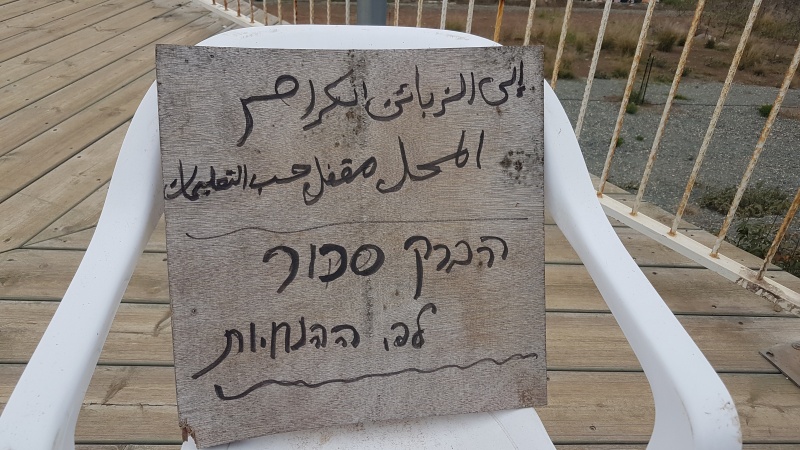 إلى الزبائن الكرام
المحل مقفل حسب التعليمات
הברק סגור
לפי ההנחיות